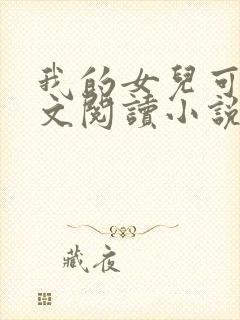 我的女兒可
文閱讀小説
藏夜